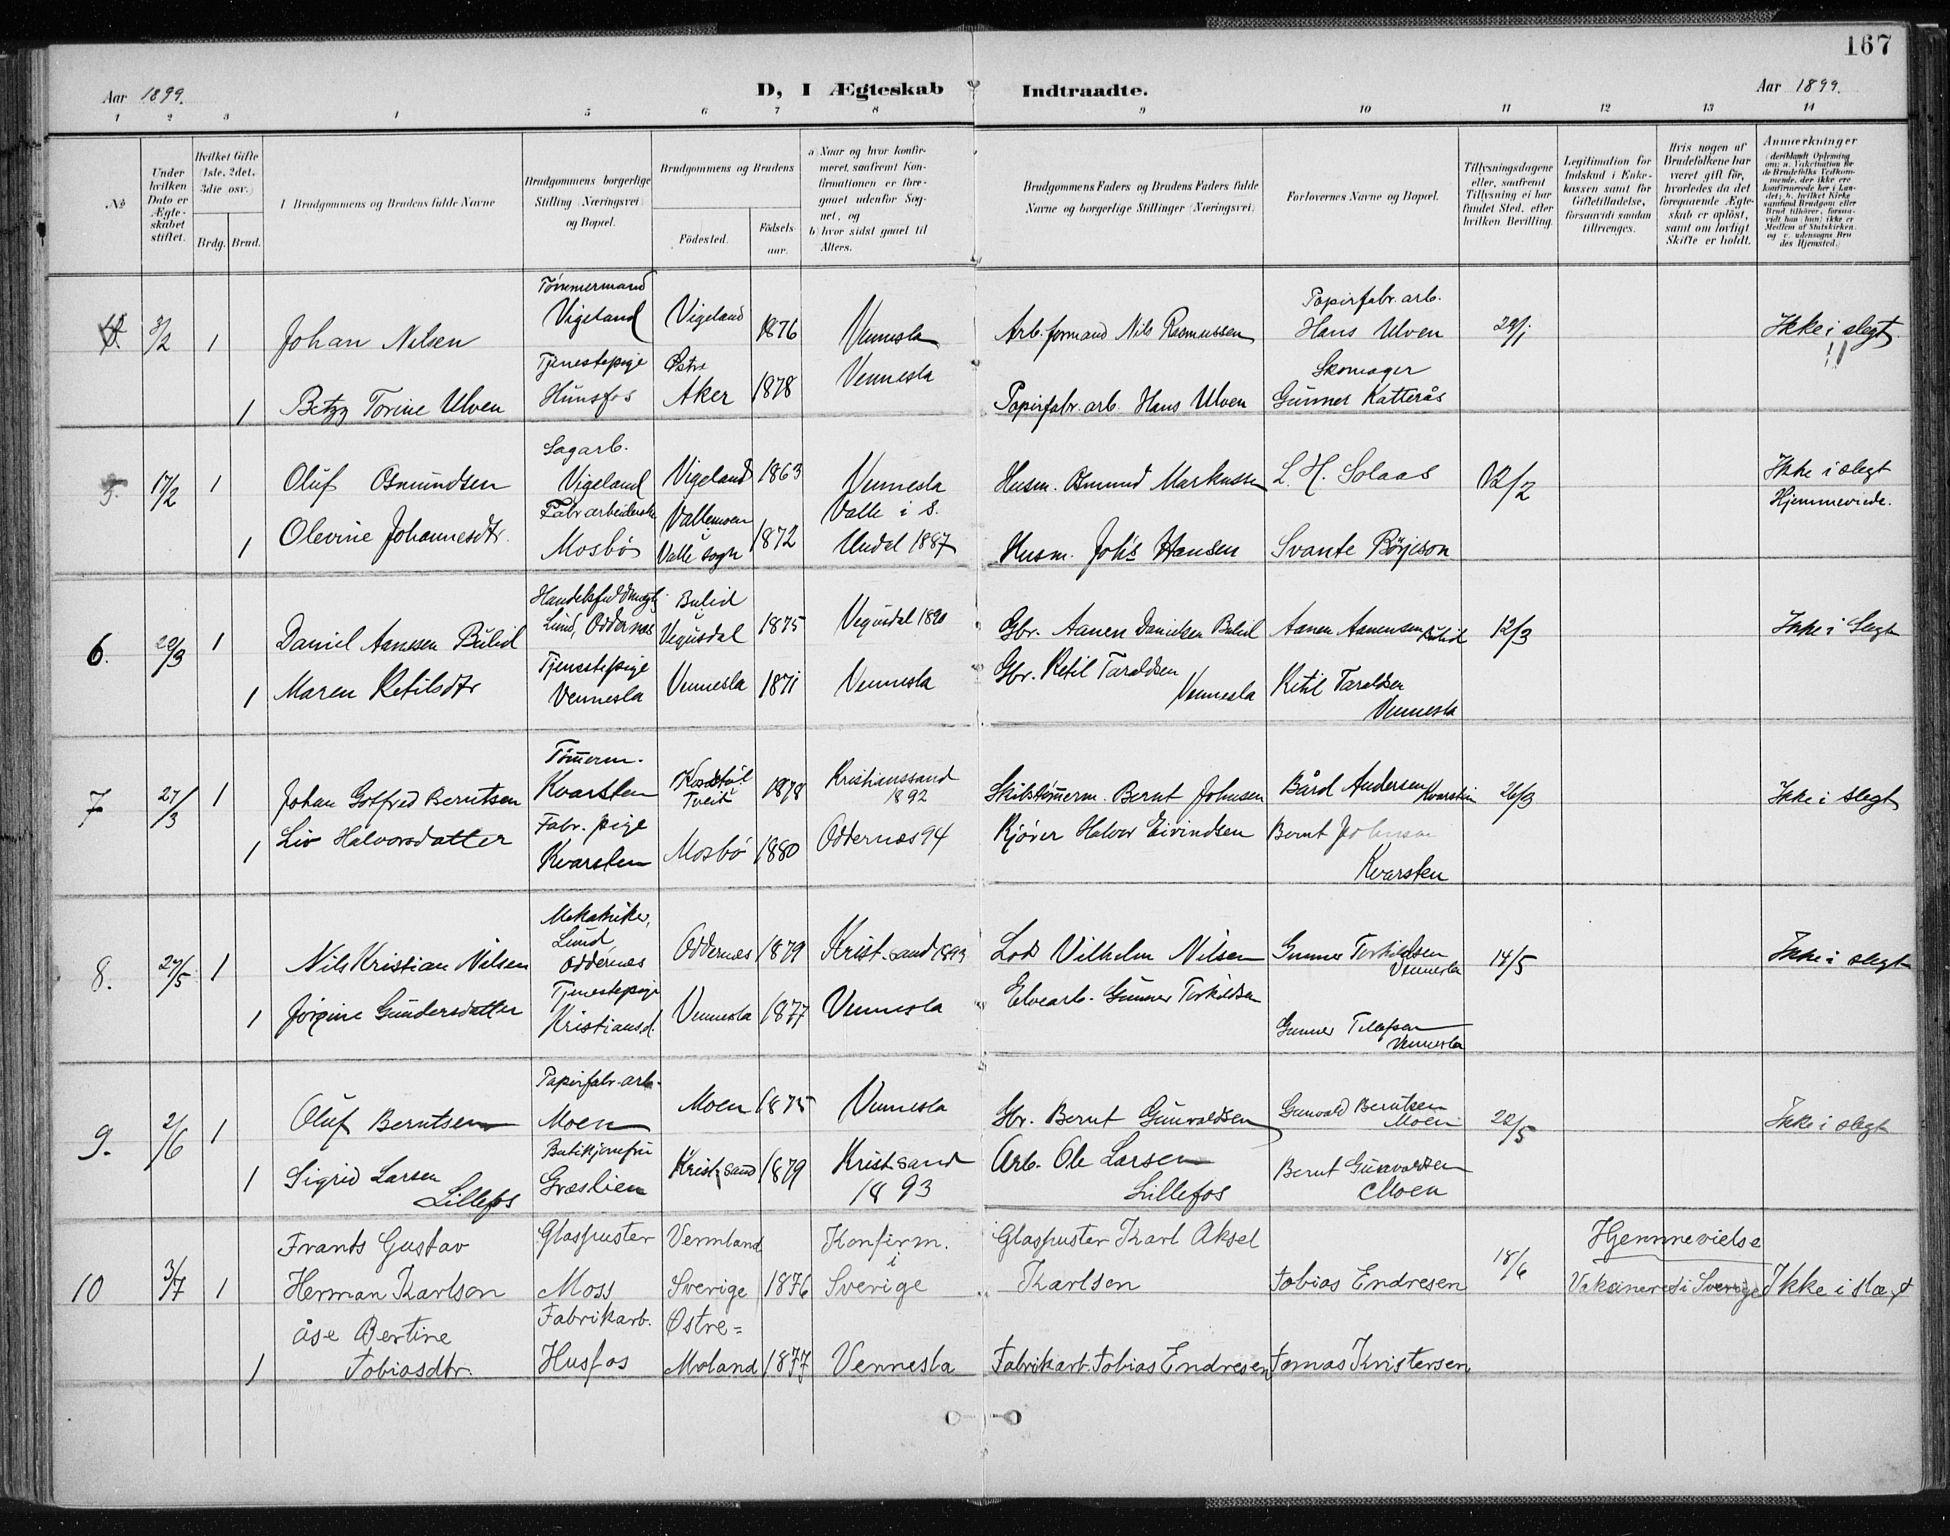 167
Aar 1899. D, I Ægteskab Indtraadte. Aar 1899.
1 2 3 4 5 6 7 8 9 10 11 12 13 14
No
Under hvilken Dato er Ægteskabet stiftet.
Hvilket Gifte (1ste, 2det, 3die osv.)
Brdg. Brud.
I Brudgommens og Brudens fulde Navne
Brudgommens borgerlige Stilling (Næringsvei) og Bopæl.
Brudgommens og Brudens
Fødested. Fødselsaar.
a) Naar og hvor konfirmeret, saafremt Konfirmationen er foregaaet udenfor Sognet, og
b) hvor sidst gaaet til Alters.
Brudgommens Faders og Brudens Faders fulde Navne og borgerlige Stillinger (Næringsvei)
Forlovernes Navne og Bopæl.
Tillysningsdagene eller, saafremt Tillysning ei har fundet Sted, efter hvilken Bevilling.
Legitimation for Indskud i Enkekassen samt for Giftetilladelse, forsaavidt saadan tiltrænges.
Hvis nogen af Brudefolkene har været gift før, hvorledes da det foregaaende Ægteskab er opløst, samt om lovligt Skifte er holdt.
Anmærkninger
(deriblandt Oplysning om: a. Vakcination for de Brudefolks Vedkommende, der ikke ere konfirmerede her i Landet; b. hvilket Kirkesamfund Brudgom eller Brud tilhører, forsaavidt han (hun) ikke er Medlem af Statskirken, og c. udensogns Brudes Hjemsted.)
3/2 1 Johan Nilsen Tømmermand Vigeland Vigeland 1876 Vennesla Arb. formand Nils Rasmussen Papirfabr. arb. Hans Ulven 29/1 Ikke i slegt
1 Betzy Torine Ulven Tjenestepige Hunsfos Østre Aker 1878 Vennesla Papirfabr. arb. Hans Ulven Skomager Gunner Katterås
5. 17/2 1 Oluf Osmundsen Sagarb. Vigeland Vigeland 1863 Vennesla Husm. Osmund Markussen L. H. Solaas 12/2 Ikke i slegt Hjemmeviede.
1 Olevine Johannesdtr. Fabrarbeiderske Mosbø Vallemoen i Valle sogn 1872 Valle i S. Undal 1887 Husm. Johs Hansen Svante Börjeson
6. 20/3 1 Daniel Aanesen Bulid Handelsfuldmægtig Lund, Oddernæs Bulid i Vegusdal 1875 Vegusdal 1890 Gbr. Aanen Danielsen Bulid Aanen Aanensen Bulid 12/3 Ikke i Slegt
1 Maren Ketilsdtr Tjenestepige Vennesla Vennesla 1871 Vennesla Gbr. Ketil Taraldsen Vennesla Ketil Taraldsen Vennesla
7 27/3 1 Johan Gotfred Berntsen Tømerm. Kvarsten Tveit 1878 Kristianssand 1892 Skibstømerm. Bernt Johnsen Bård Andersen Kvarstein 26/3 Ikke i slegt
1 Liv Halvorsdatter Fabr. pige Kvarsten Mosbø 1880 Oddernæs 94 Kjører Halvor Eivindsen Bernt Johnsen Kvarsten
8. 27/5 1 Nils Kristian Nilsen Mekaniker, Lund, Oddernæs Oddernæs 1879 Krist.sand 1893 Lods Vilhelm Nilsen Gunner Torkildsen Vennesla 14/5 Ikke i slegt
1 Jørgine Gundersdatter Tjenestepige Kristiansd. Vennesla 1877 Vennesla Elvearb. Gunner Torkildsen Gunner Tellefsen Vennesla
9. 2/6 1 Oluf Berntsen Papirfabr. arb. Moen Moen 1875 Vennesla Gbr. Bernt Gunvaldsen Gunvald Berntsen Moen 22/5 Ikke i slegt
1 Sigrid Larsen Lillefos Butikjomfru Græslien Krist.sand 1879 Krist.sand 1893 Arb. Ole Larsen Lillefos Bernt Gunvaldsen Moen
10 3/7 1 Frants Gustav Herman Karlson Glaspuster Moss Vermland Sverige 1876 Konfirm. i Sverige Glaspuster Karl Aksel Karlson Tobias Endresen 18/6 Hjemmevielse Vaksineret i Sverige Ikke i slægt
1 Åse Bertine Tobiasdtr. Fabrikarb. Husfos Østre= Moland 1877 Vennesla Fabrikarb. Tobias Endresen Tomas Kristensen